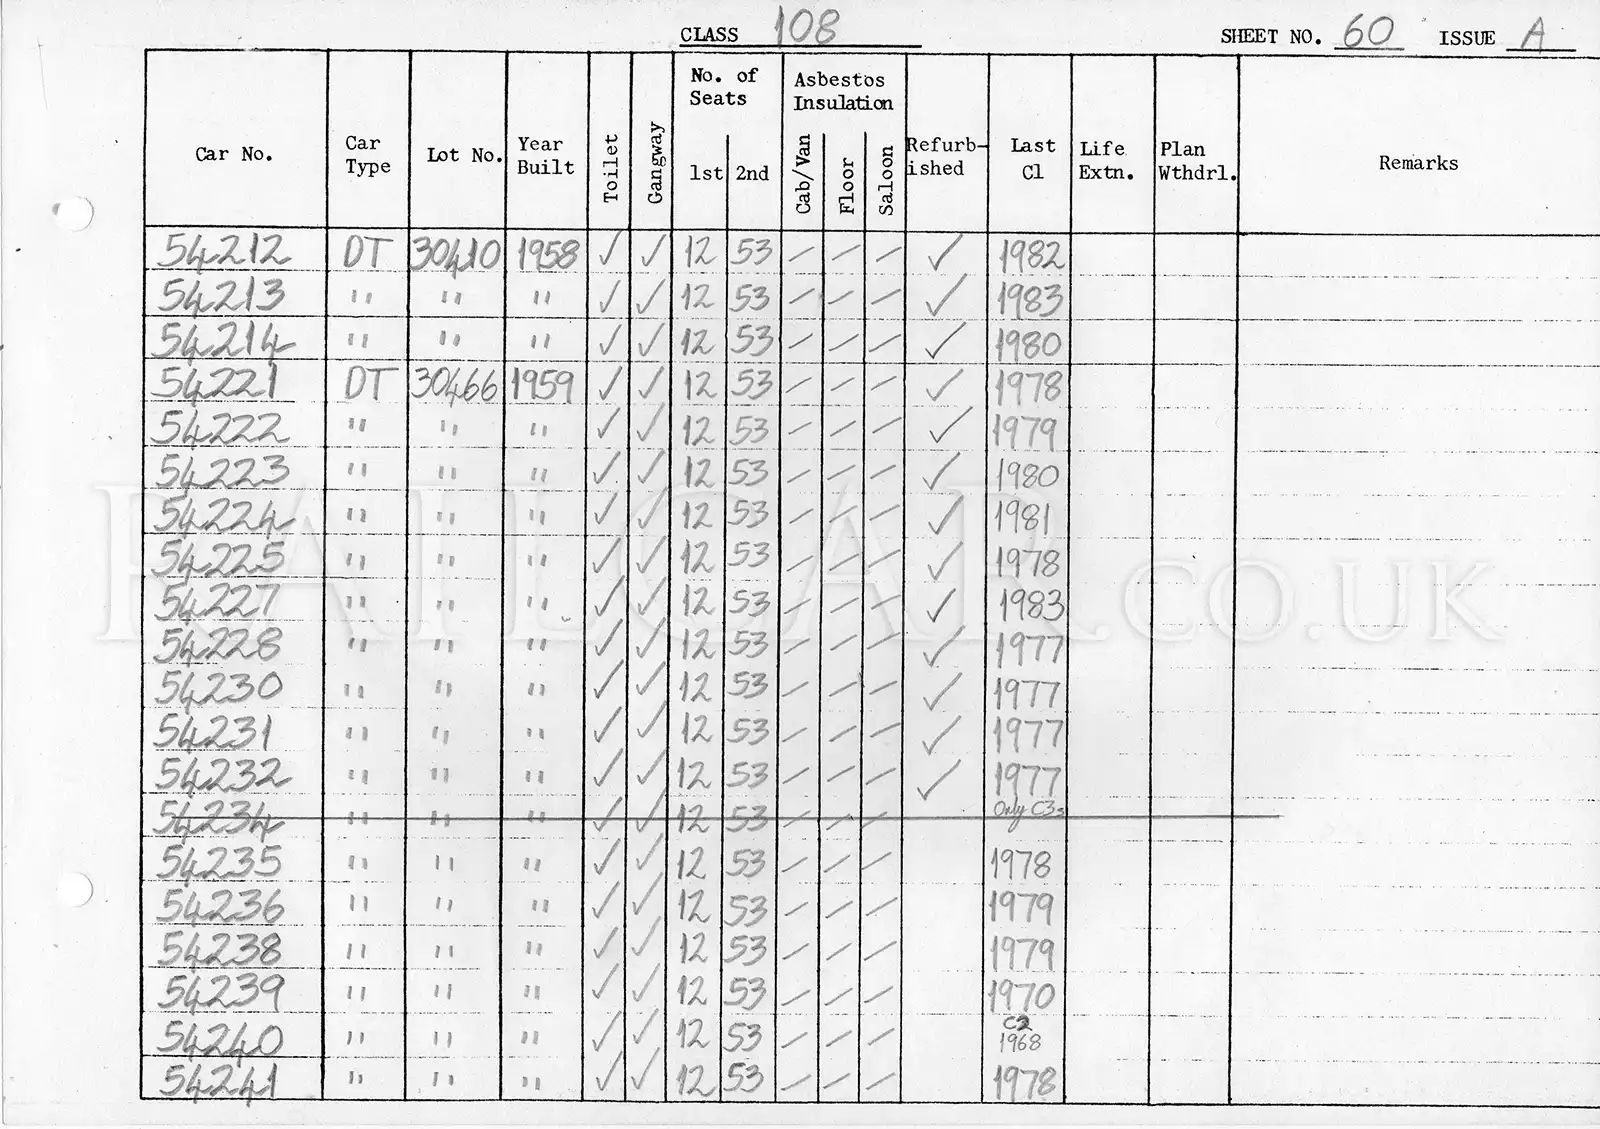 CLASS 108 SHEET NO. 60 ISSUE A
Car No. Car Type Lot No. Year Built Toilet Gangway No. of Seats 1st 2nd Asbestos Insulation Cab/Van Floor Saloon Refurb-ished Last Cl Life Extn. Plan Wthdrl. Remarks
54212 DT 30410 1958 ✓ ✓ 12 53 / / / ✓ 1982
54213 " " " ✓ ✓ 12 53 / / / ✓ 1983
54214 " " " ✓ ✓ 12 53 / / / ✓ 1980
54221 DT 30466 1959 ✓ ✓ 12 53 / / / ✓ 1978
54222 " " " ✓ ✓ 12 53 / / / ✓ 1979
54223 " " " ✓ ✓ 12 53 / / / ✓ 1980
54224 " " " ✓ ✓ 12 53 / / / ✓ 1981
54225 " " " ✓ ✓ 12 53 / / / ✓ 1978
54227 " " " ✓ ✓ 12 53 / / / ✓ 1983
54228 " " " ✓ ✓ 12 53 / / / ✓ 1977
54230 " " " ✓ ✓ 12 53 / / / ✓ 1977
54231 " " " ✓ ✓ 12 53 / / / ✓ 1977
54232 " " " ✓ ✓ 12 53 / / / ✓ 1977
54234 " " " ✓ ✓ 12 53 / / / Only C3s
54235 " " " ✓ ✓ 12 53 / / / 1978
54236 " " " ✓ ✓ 12 53 / / / 1979
54238 " " " ✓ ✓ 12 53 / / / 1979
54239 " " " ✓ ✓ 12 53 / / / 1970
54240 " " " ✓ ✓ 12 53 / / / C2 1968
54241 " " " ✓ ✓ 12 53 / / / 1978
RAILCAR.CO.UK